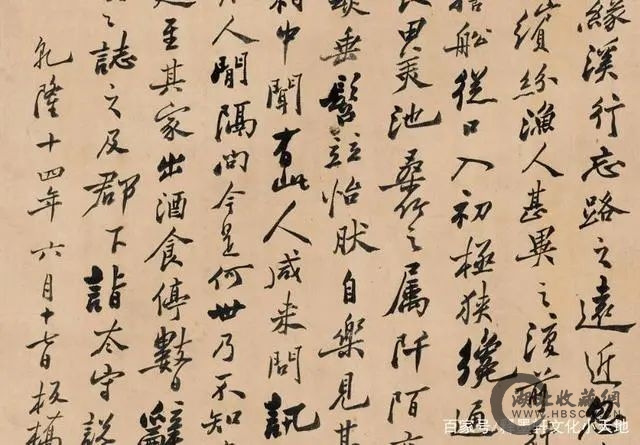 緣溪行忘路之遠近
繽紛漁人甚異之復前
捨船從口入初極狹纔通
田美池桑竹之属阡陌
垂髫竝怡肰自樂見其
村中聞有此人咸来問訊
人間隔問今是何世乃不知
至其家出酒食停數日辭
誌之及郡下詣太守説
乾隆十四年六月十七日板橋
湖北收藏网
百家号/文化小天地